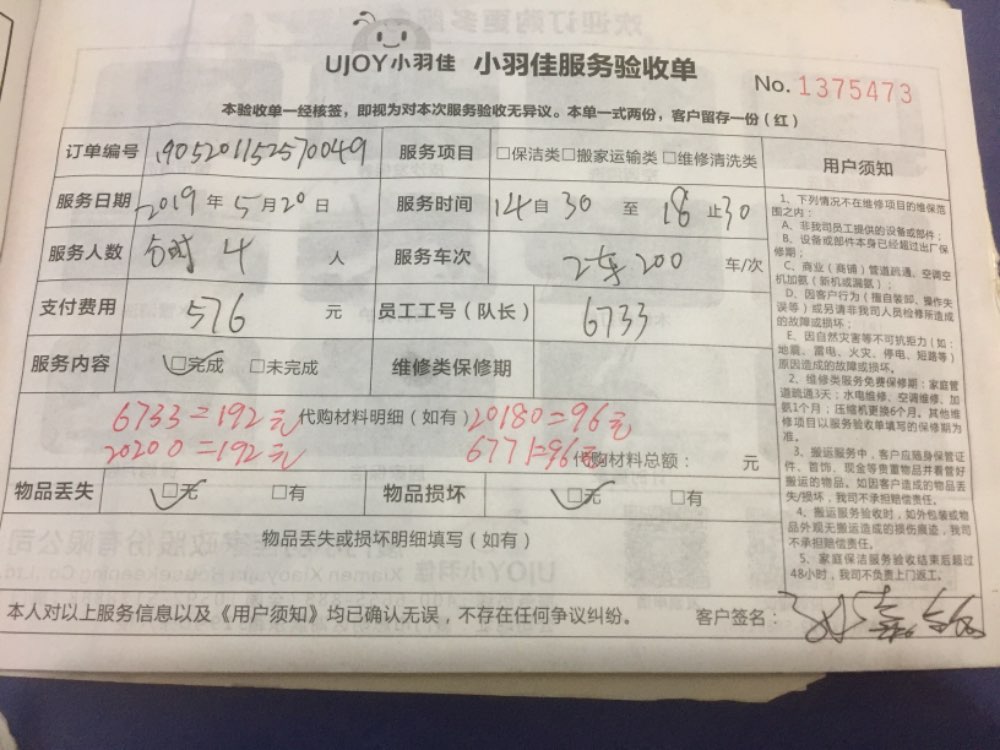 UJOY小羽佳 小羽佳服务验收单
No. 1375473
本验收单一经核签，即视为对本次服务验收无异议。本单一式两份，客户留存一份（红）
订单编号 1905201152570049 服务项目 □保洁类□搬家运输类□维修清洗类
服务日期 2019 年 5 月 20 日 服务时间 14 自 30 至 18 止 30
服务人数 4 人 服务车次 2车 200 车/次
支付费用 576 元 员工工号（队长） 6733
服务内容 □完成 □未完成 维修类保修期
6733=192元 代购材料明细（如有） 20180=96元
20200=192元 6771=96元 代购材料总额： 元
物品丢失 □无 □有 物品损坏 □无 □有
物品丢失或损坏明细填写（如有）
本人对以上服务信息以及《用户须知》均已确认无误，不存在任何争议纠纷。 客户签名：
用户须知
1、下列情况不在维修项目的维保范
围之内：
A、非我司员工提供的设备或部件；
B、设备或部件本身已经超过出厂保
修期；
C、商业（商铺）管道疏通、空调空
机加氨（新机或漏氨）；
D、因客户行为（擅自装卸、操作失
误等）或另请非我司人员检修所造成
的故障或损坏；
E、因自然灾害等不可抗拒力（如：
地震、雷电、火灾、停电、短路等）
原因造成的故障或损坏。
2、维修类服务免费保修期：家庭管
道疏通3天；水电维修、空调维修、加
氨1个月；压缩机更换6个月。其他维
修项目以服务验收单填写的保修期为
准。
3、搬运服务中，客户应随身保管证
件、首饰、现金等贵重物品并看管好
搬运的物品。如因客户造成的物品丢
失/损坏，我司不承担赔偿责任。
4、搬运服务验收时，如外包装或物
品外观无搬运造成的损伤痕迹，我司
不承担赔偿责任。
5、家庭保洁服务验收结束后超过
48小时，我司不负责上门返工。